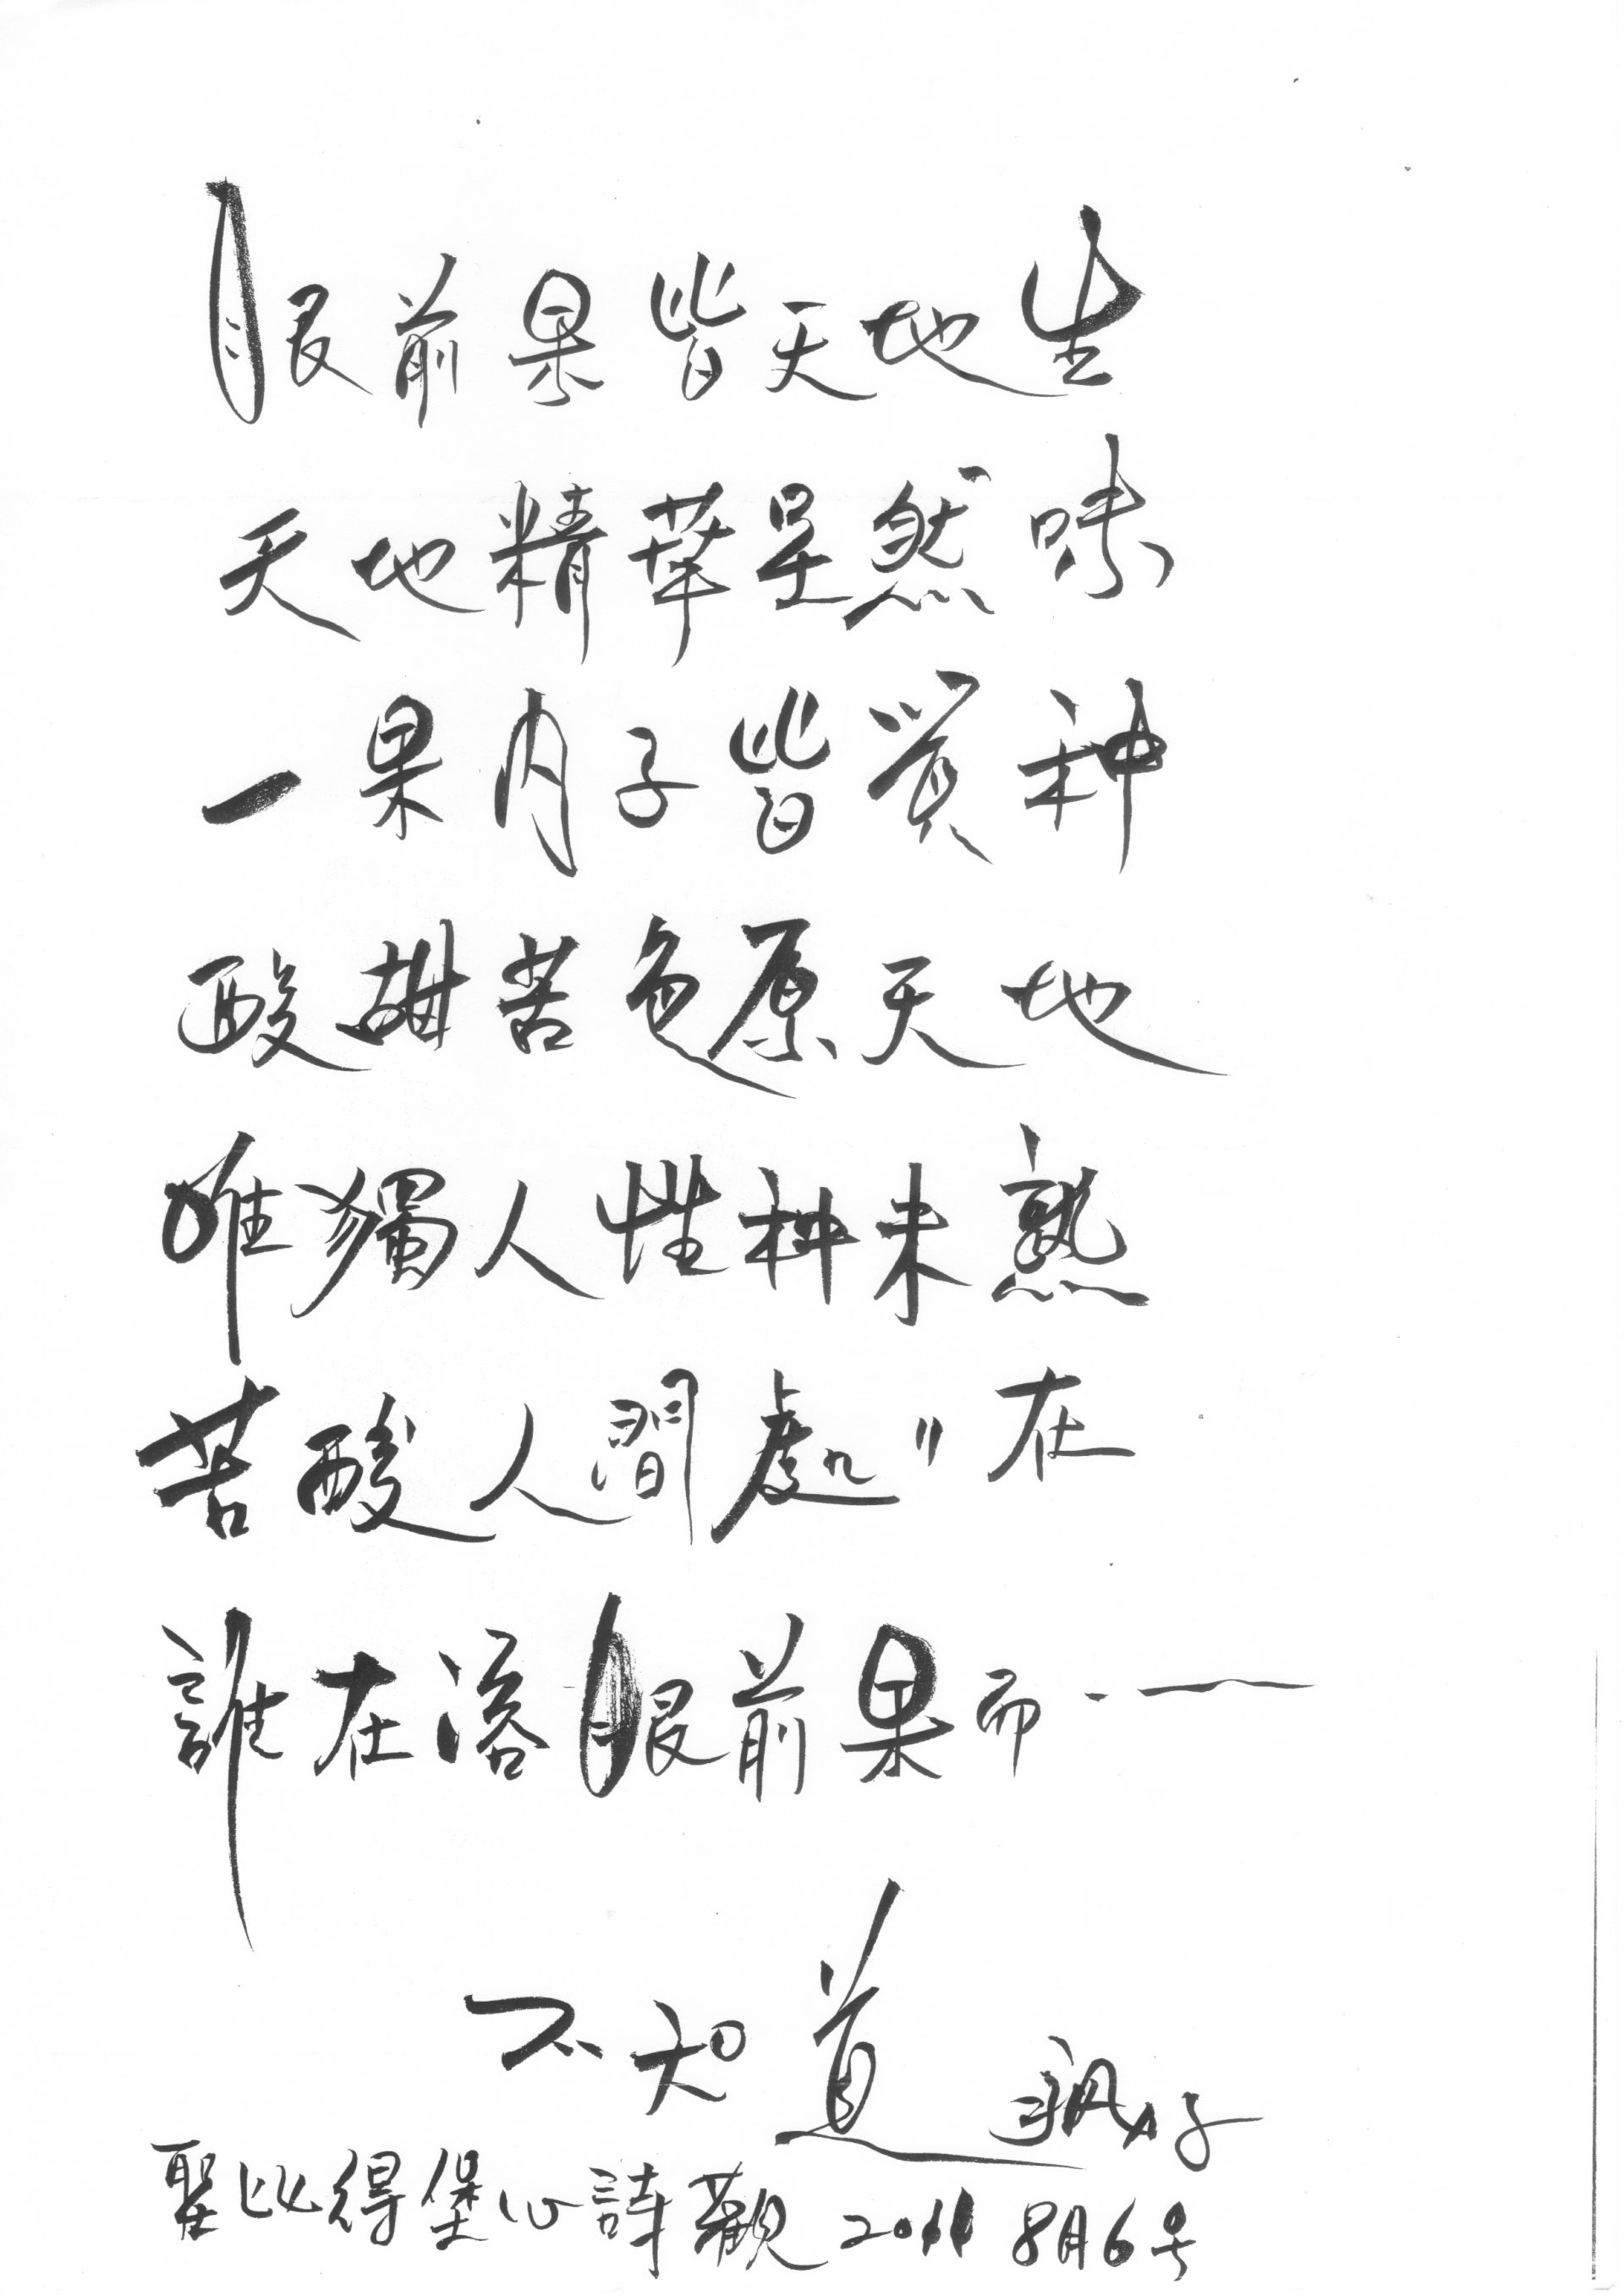 眼前果皆天地生
天地精華呈然味
一果内子皆質种
酸甜苦色原天地
唯獨人性种未熟
苦酸人間處〃在
誰在溶眼前果而·一
不知道
聖比得堡心詩觀 2011 8月6号